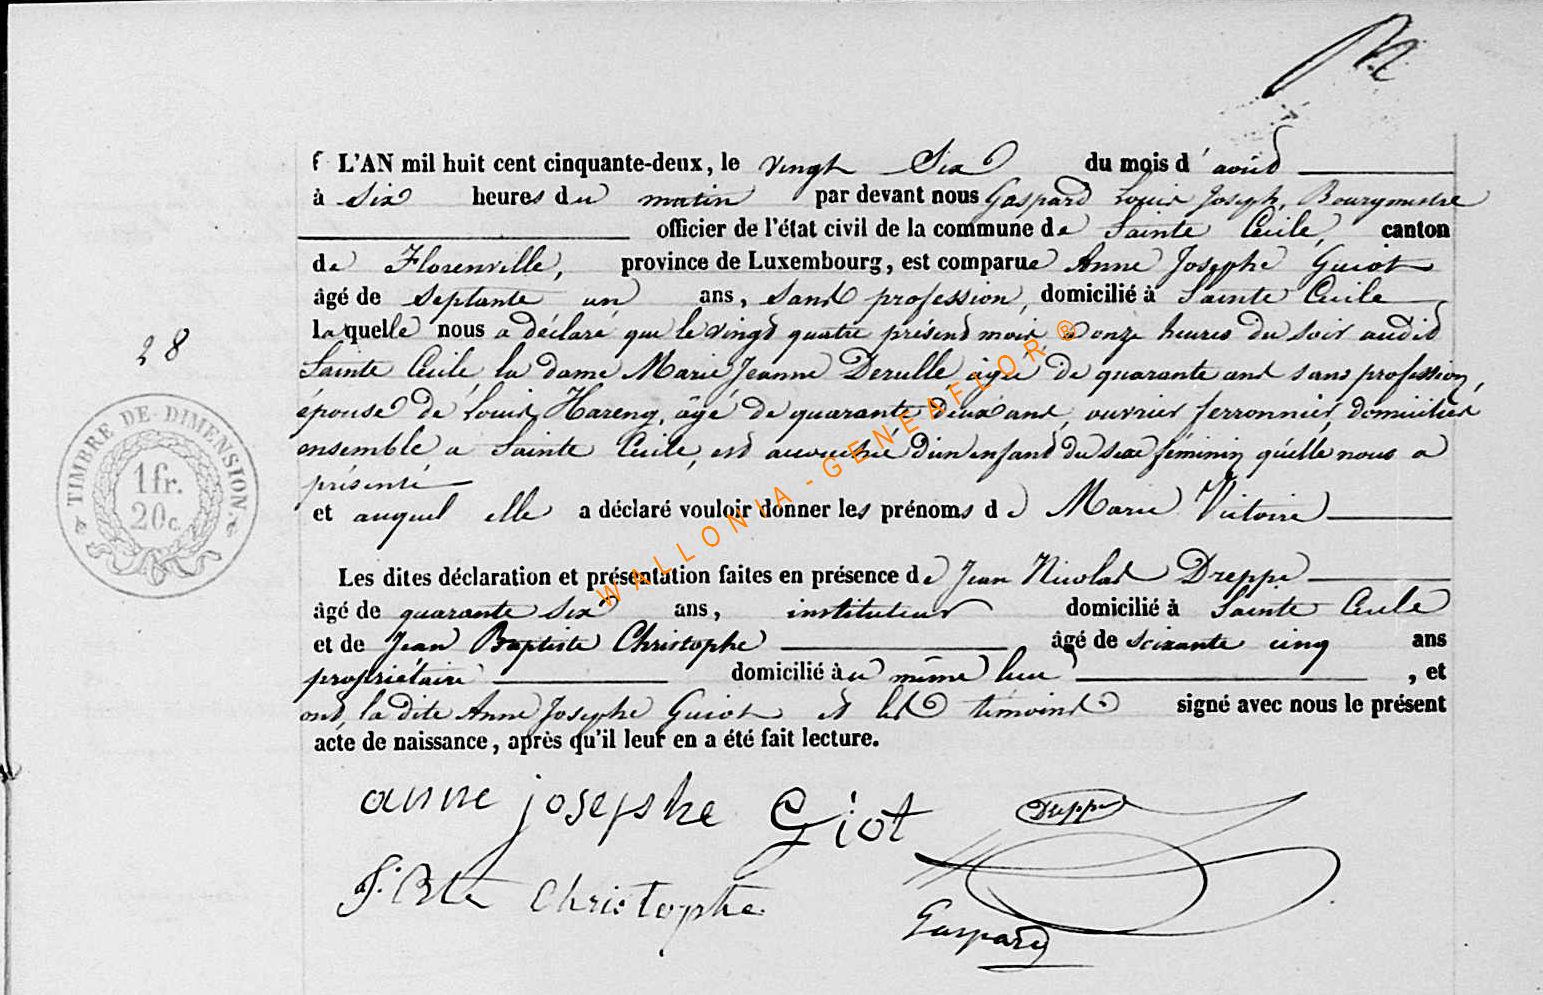 L'AN mil huit cent cinquante-deux, le vingt Six du mois d'août
à Six heures du matin par devant nous Gaspard Louis Joseph, Bourgmestre
officier de l'état civil de la commune de Sainte Cécile, canton
de Florenville, province de Luxembourg, est comparue Anne Josephe Guiot
âgé de septante un ans, sans profession, domicilié à Sainte Cécile
laquelle nous a déclaré que le vingt quatre présent mois, à onze heures du soir audit
Sainte Cécile, la dame Marie Jeanne Derulle âgée de quarante ans sans profession,
épouse de Louis Hareng, âgé de quarante deux ans, ouvrier ferronnier, domiciliés
ensemble a Sainte Cécile, est accouchée d'un enfant du sexe féminin qu'elle nous a
présenté
et auquel elle a déclaré vouloir donner les prénoms de Marie Victoire
Les dites déclaration et présentation faites en présence de Jean Nicolas Dreppe
âgé de quarante six ans, instituteur domicilié à Sainte Cécile
et de Jean Baptiste Christophe âgé de soixante cinq ans
propriétaire domicilié au même lieu, et
ont, la dite Anne Josephe Guiot et les témoins signé avec nous le présent
acte de naissance, après qu'il leur en a été fait lecture.
28
TIMBRE DE DIMENSION
1 fr.
20 c.
WALLONIA-GENEAFLOR®
anne josephe Giot
Dreppe
J. Bte Christophe
Gaspard